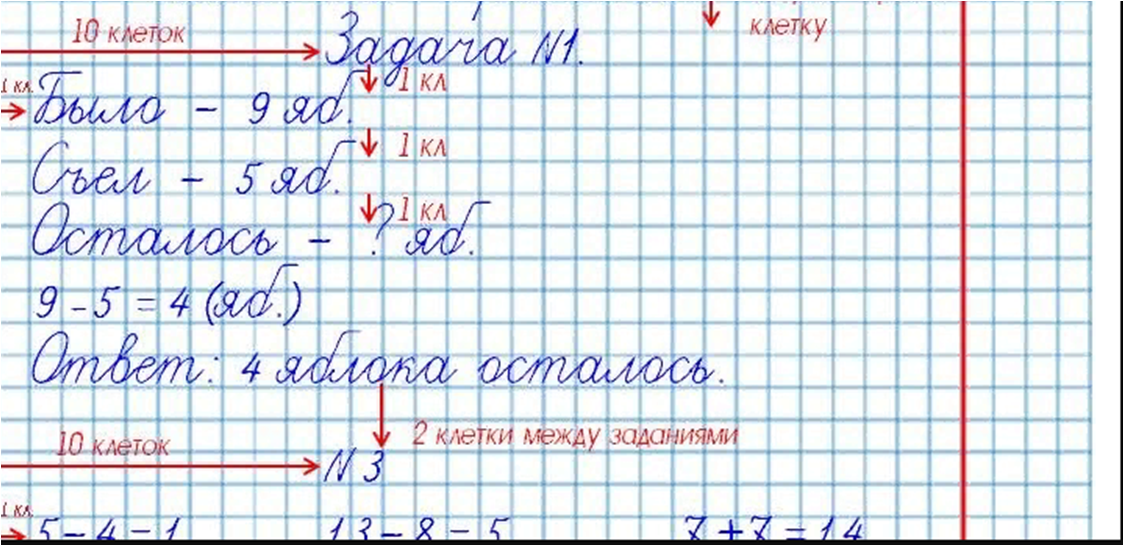 10 клеток Задача N1. клетку
1 кл. Было – 9 яб. 1 кл
Съел – 5 яб. 1 кл
Осталось – ? яб. 1 кл
9 – 5 = 4 (яб.)
Ответ: 4 яблока осталось.
2 клетки между заданиями
10 клеток N 3
1 кл. 5 – 4 = 1 13 – 8 = 5 7 + 7 = 14